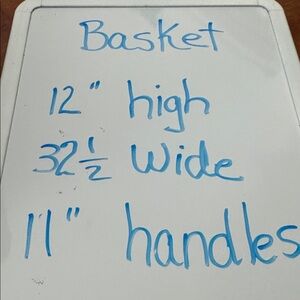 Basket
12" high
32 1/2 Wide
11" handles